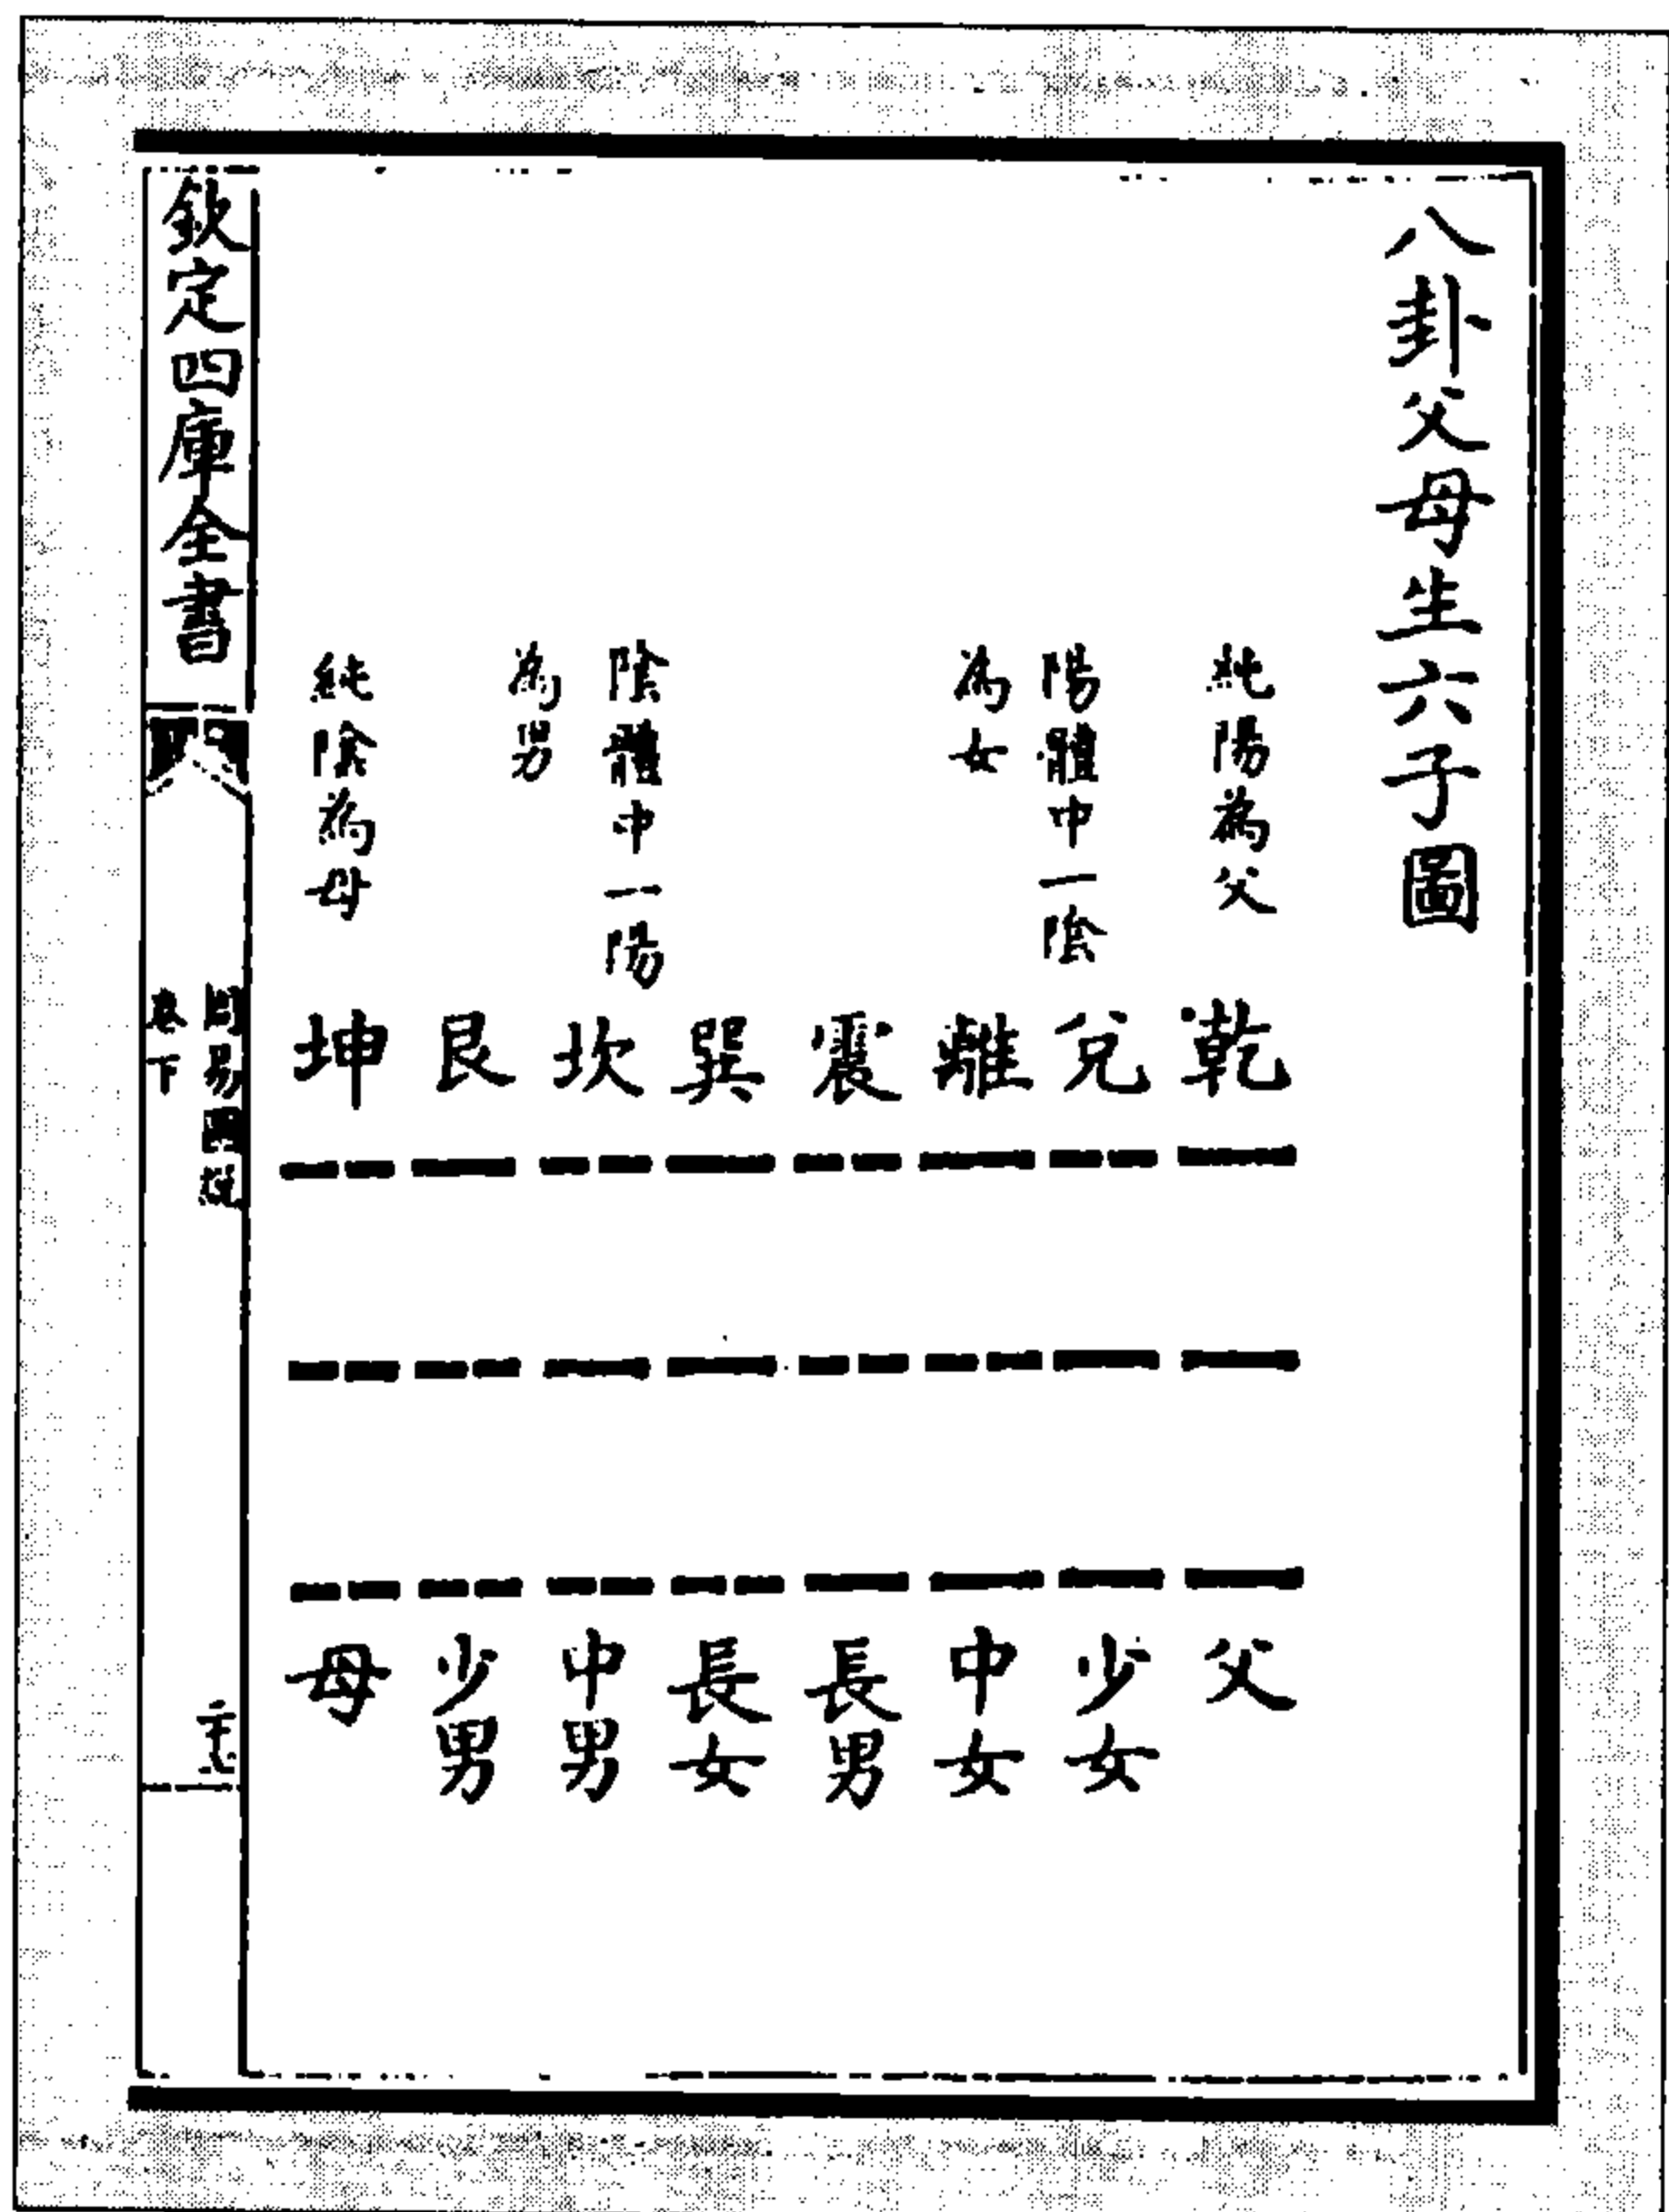 八卦父母生六子圖
純陽為父
陽體中一陰
為女
陰體中一陽
為男
純陰為母
乾
兌
離
震
巽
坎
艮
坤
父
少女
中女
長男
長女
中男
少男
母
欽定四庫全書
周易圖說
卷下